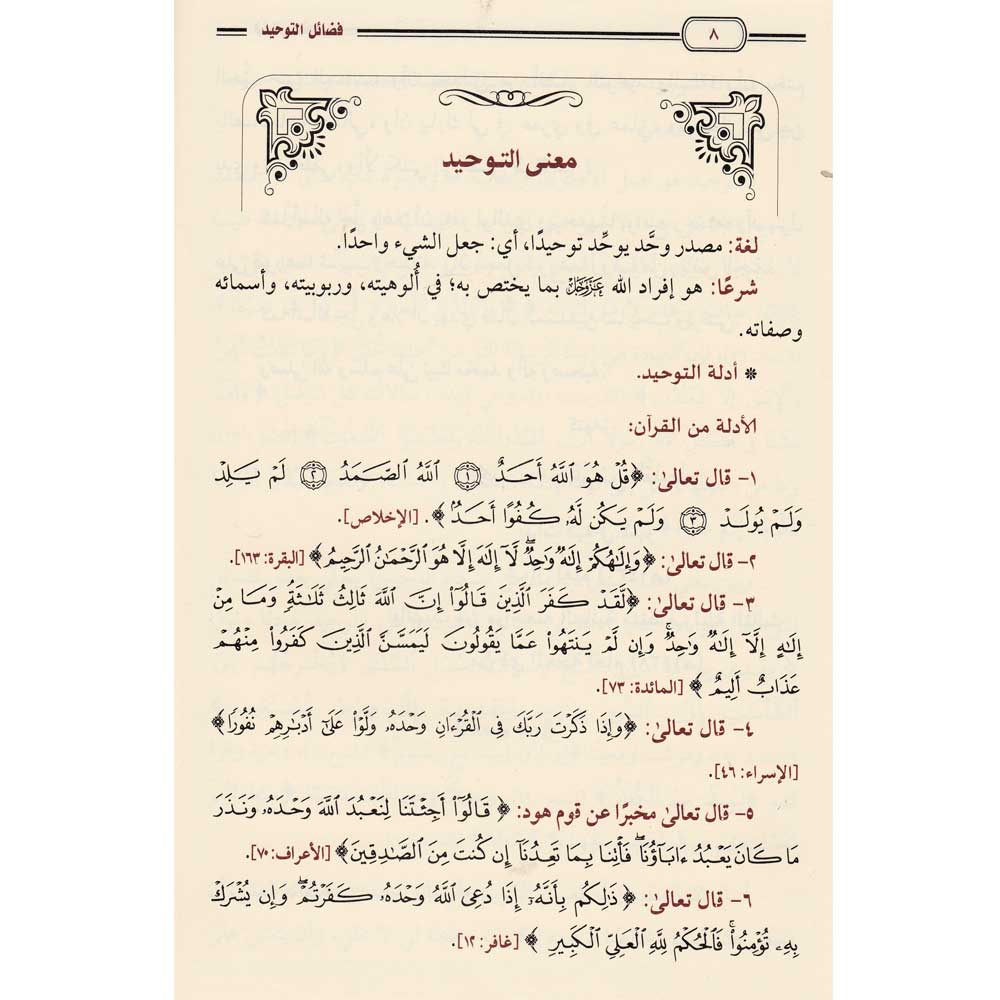 ٨ فضائل التوحيد
معنى التوحيد
لغة: مصدر وحَّد يوحِّد توحيدًا، أي: جعل الشيء واحدًا.
شرعًا: هو إفراد الله عَزَّوَجَلَّ بما يختص به؛ في أُلوهيته، وربوبيته، وأسمائه
وصفاته.
* أدلة التوحيد.
الأدلة من القرآن:
١- قال تعالىٰ: ﴿قُلْ هُوَ ٱللَّهُ أَحَدٌ ١ ٱللَّهُ ٱلصَّمَدُ ٢ لَمْ يَلِدْ
وَلَمْ يُولَدْ ٣ وَلَمْ يَكُن لَّهُۥ كُفُوًا أَحَدٌۢ﴾. [الإخلاص].
٢- قال تعالىٰ: ﴿وَإِلَٰهُكُمْ إِلَٰهٌ وَٰحِدٌ ۖ لَّآ إِلَٰهَ إِلَّا هُوَ ٱلرَّحْمَٰنُ ٱلرَّحِيمُ﴾ [البقرة: ١٦٣].
٣- قال تعالىٰ: ﴿لَّقَدْ كَفَرَ ٱلَّذِينَ قَالُوٓا۟ إِنَّ ٱللَّهَ ثَالِثُ ثَلَٰثَةٍ ۘ وَمَا مِنْ
إِلَٰهٍ إِلَّآ إِلَٰهٌ وَٰحِدٌ ۚ وَإِن لَّمْ يَنتَهُوا۟ عَمَّا يَقُولُونَ لَيَمَسَّنَّ ٱلَّذِينَ كَفَرُوا۟ مِنْهُمْ
عَذَابٌ أَلِيمٌ﴾ [المائدة: ٧٣].
٤- قال تعالىٰ: ﴿وَإِذَا ذَكَرْتَ رَبَّكَ فِى ٱلْقُرْءَانِ وَحْدَهُۥ وَلَّوْا۟ عَلَىٰٓ أَدْبَٰرِهِمْ نُفُورًا﴾
[الإسراء: ٤٦].
٥- قال تعالىٰ مخبرًا عن قوم هود: ﴿قَالُوٓا۟ أَجِئْتَنَا لِنَعْبُدَ ٱللَّهَ وَحْدَهُۥ وَنَذَرَ
مَا كَانَ يَعْبُدُ ءَابَآؤُنَا ۖ فَأْتِنَا بِمَا تَعِدُنَآ إِن كُنتَ مِنَ ٱلصَّٰدِقِينَ﴾ [الأعراف: ٧٠].
٦- قال تعالىٰ: ﴿ذَٰلِكُم بِأَنَّهُۥٓ إِذَا دُعِىَ ٱللَّهُ وَحْدَهُۥ كَفَرْتُمْ ۖ وَإِن يُشْرَكْ
بِهِۦ تُؤْمِنُوا۟ ۚ فَٱلْحُكْمُ لِلَّهِ ٱلْعَلِىِّ ٱلْكَبِيرِ﴾ [غافر: ١٢].